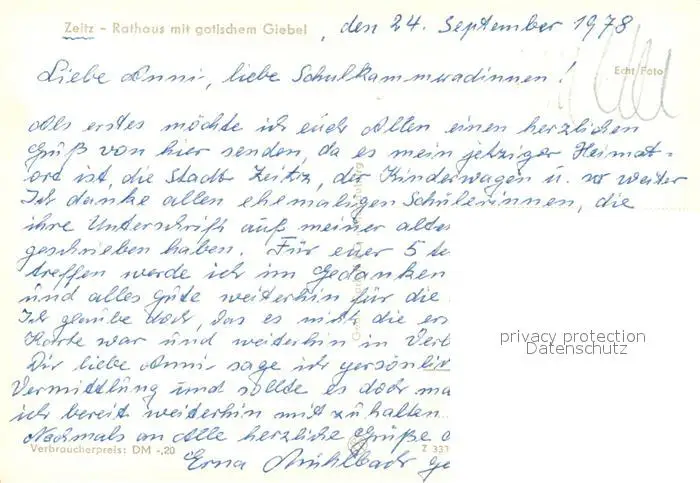 Zeitz - Rathaus mit gotischem Giebel, den 24. September 1978
Echt Foto
Liebe Anni, liebe Schulkammradinnen!
Als erstes möchte ich euch Allen einen herzlichen
Gruß von hier senden, da es mein jetziger Heimat-
ort ist, die Stadt Zeitz, der Kinderwagen u. so weiter
Ich danke allen ehemaligen Schülerinnen, die
ihre Unterschrift auf meiner alte
geschrieben haben. Für euer 5 te
treffen werde ich im Gedanken
und alles Gute weiterhin für die
Ich glaube doch, das es nicht die ers
Karte war und weiterhin in Verb
Dir liebe Anni sage ich persönlic
Vermittlung und sollte es doch ma
ich bereit weiterhin mit zu halten
Nochmals an Alle herzliche Grüße
Verbraucherpreis: DM -,20
Z 337
Erna Mühlbach ge
privacy protection
Datenschutz